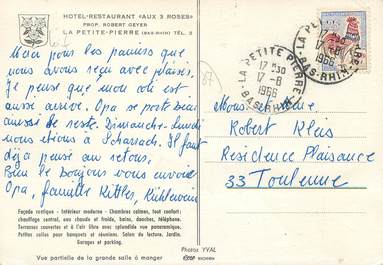 HOTEL-RESTAURANT «AUX 3 ROSES»
PROP. ROBERT GEYER
LA PETITE-PIERRE (BAS-RHIN) TÉL. 3
Merci pour les paniers que
nous avons reçu avec plaisir.
Je pense que mon coli est
aussi arrivé. Opa se porte bien
aussi de reste. Dimanche-Lundi
nous étions à Scharrach. Il faut
déjà pensé au retour.
Bien le bonjour vous envoie
Opa, famille Kittler,
Façade rustique - Intérieur moderne - Chambres calmes, tout confort:
chauffage central, eau chaude et froide, bains, douches, téléphone.
Terrasses couvertes et à l'air libre avec splendide vue panoramique.
Petites salles pour banquets et réunions. Salon de lecture. Jardin.
Garages et parking.
Vue partielle de la grande salle à manger
Photos YVAL
87
LA PETITE PIERRE
17 H30
17-8
1966
BAS-RHIN
LA PETITE PIERRE
17-8
1966
BAS-RHIN
Robert Kleis
Residence Plaisance
33 Toulenne